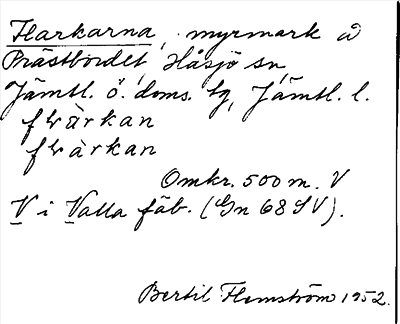 Flarkarna, myrmark å
Prästbordet, Håsjö sn,
Jämtl. ö. doms. tg, Jämtl. l.
flàrkan
flàrkan
Omkr. 500 m. V
V i Valla fäb. (Gn 68 SV).
Bertil Flemström 1952.